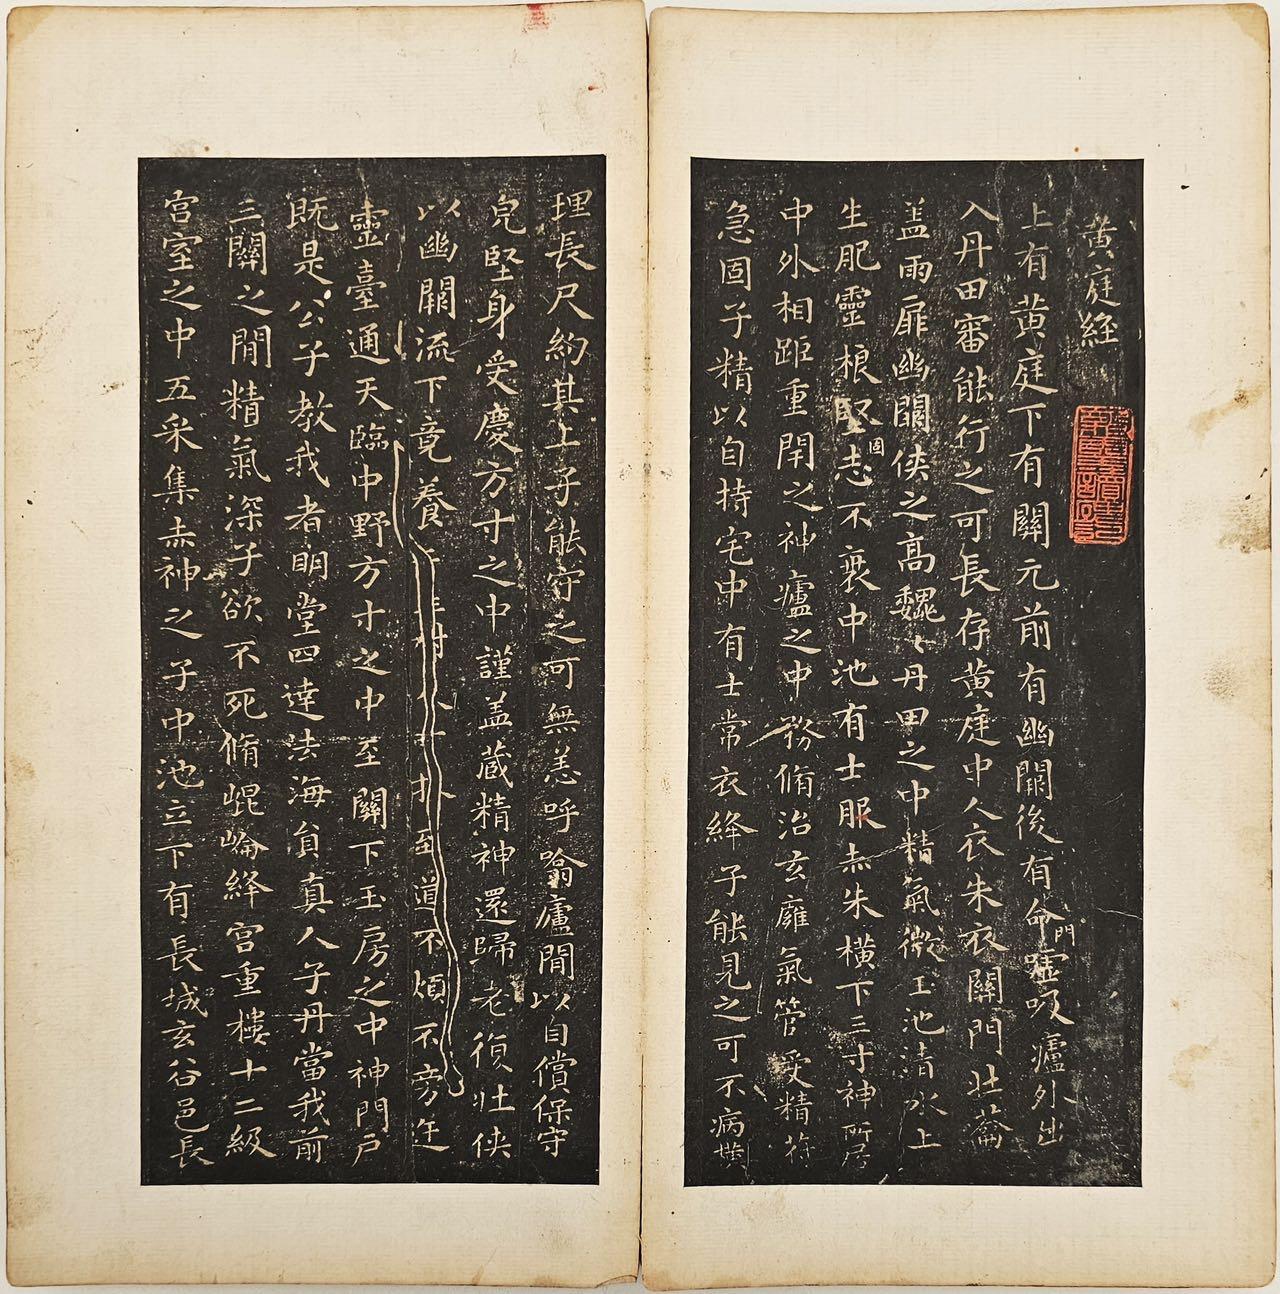 黄庭經
上有黄庭下有關元前有幽闕後有命門噓吸廬外出
入丹田審能行之可長存黄庭中人衣朱衣關門壯蘥
盖兩扉幽闕侠之高魏丶丹田之中精氣微玉池清水上
生肥靈根堅固志不衰中池有士服赤朱横下三寸神所居
中外相距重閇之神廬之中務脩治玄廱氣管受精符
急固子精以自持宅中有士常衣絳子能見之可不病横
理長尺約其上子能守之可無恙呼噏廬間以自償保守
皃堅身受慶方寸之中謹盖藏精神還歸老復壯侠
以幽闕流下竟養至道不煩不旁迕
靈臺通天臨中野方寸之中至關下玉房之中神門戶
既是公子教我者明堂四達法海員真人子丹當我前
三關之間精氣深子欲不死脩崐崘絳宫重樓十二級
宫室之中五采集赤神之子中池立下有長城玄谷邑長